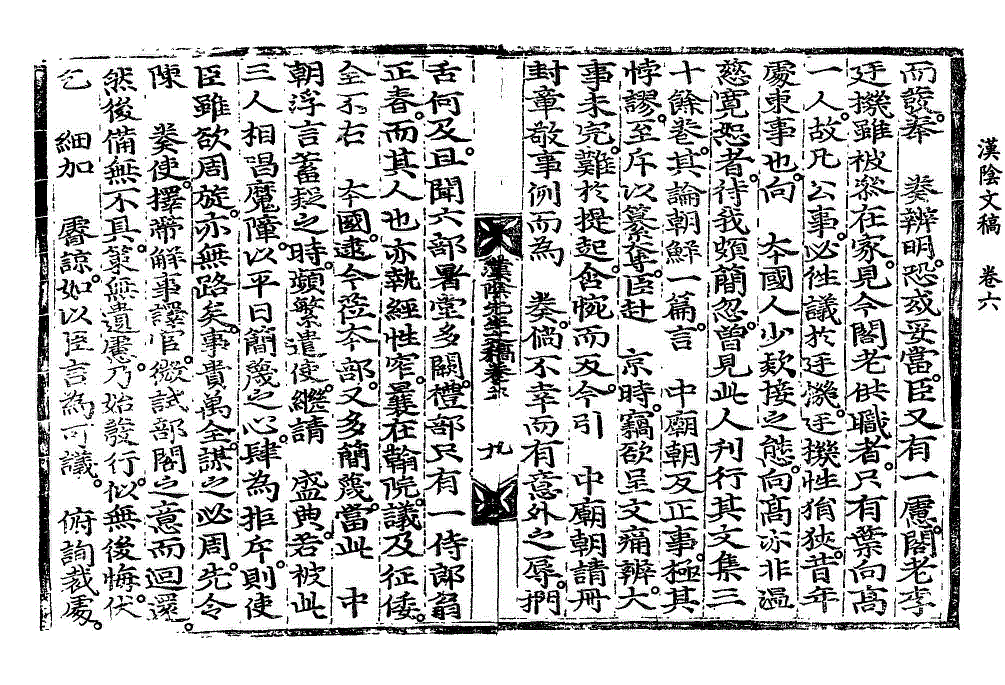 漢陰文稿 卷六
而發奉 奏辨明恐或妥當臣又有一慮閣老李
廷機雖被參在家見今閣老供職者只有葉向高
一人故凡公事必往議於廷機廷機性狷狹昔年
處東事也向 本國人少款接之態向高亦非溫
慈寬恕者待我頗簡忽曾見此人刊行其文集三
十餘卷其論朝鮮一篇言 中廟朝反正事極其
悖謬至斥以篡奪臣赴 京時竊欲呈文痛辨大
事未完難於提起含惋而反今引 中廟朝請冊
封章敬事例而為 奏倘不幸而有意外之辱捫
漢陰先生文稿卷之六 九
舌何及且聞六部署堂多闕禮部只有一侍郎翁
正春而其人也亦執經性窄曩在翰院議及征倭
全不右 本國逮今莅本部又多簡蔑當此 中
朝浮言蓄疑之時頻繁遣使繼請 盛典若被此
三人相昌魔障以平日簡蔑之心肆為拒斥則使
臣雖欲周旋亦無路矣事貴萬全謀之必周先令
陳 奏使擇帶解事譯官微試部閣之意而迴還
然後備無不具策無遺慮乃始發行似無後悔伏
乞 細加 睿諒如以臣言為可議 俯詢裁處